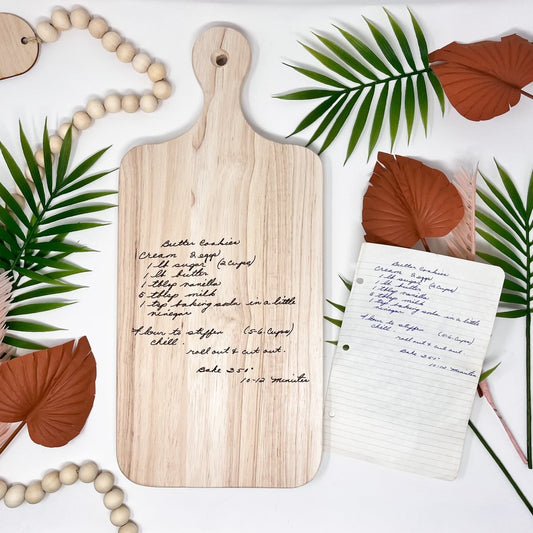 Butter Cookies
Cream 2 eggs
1 lb sugar (2 cups)
1 lb butter
1 tblsp vanella
5 tblsp milk
1 tsp baking soda in a little
vinegar
Flour to stiffen (5-6 cups)
chill.
roll out & cut out.
Bake 350°
10-12 Minutes
Butter Cookies
Cream 2 eggs
1 lb sugar (2 cups)
1 lb butter
1 tblsp vanella
5 tblsp milk
1 tsp baking soda in a little
vinegar
Flour to stiffen (5-6 cups)
chill.
roll out & cut out.
Bake 350°
10-12 Minutes